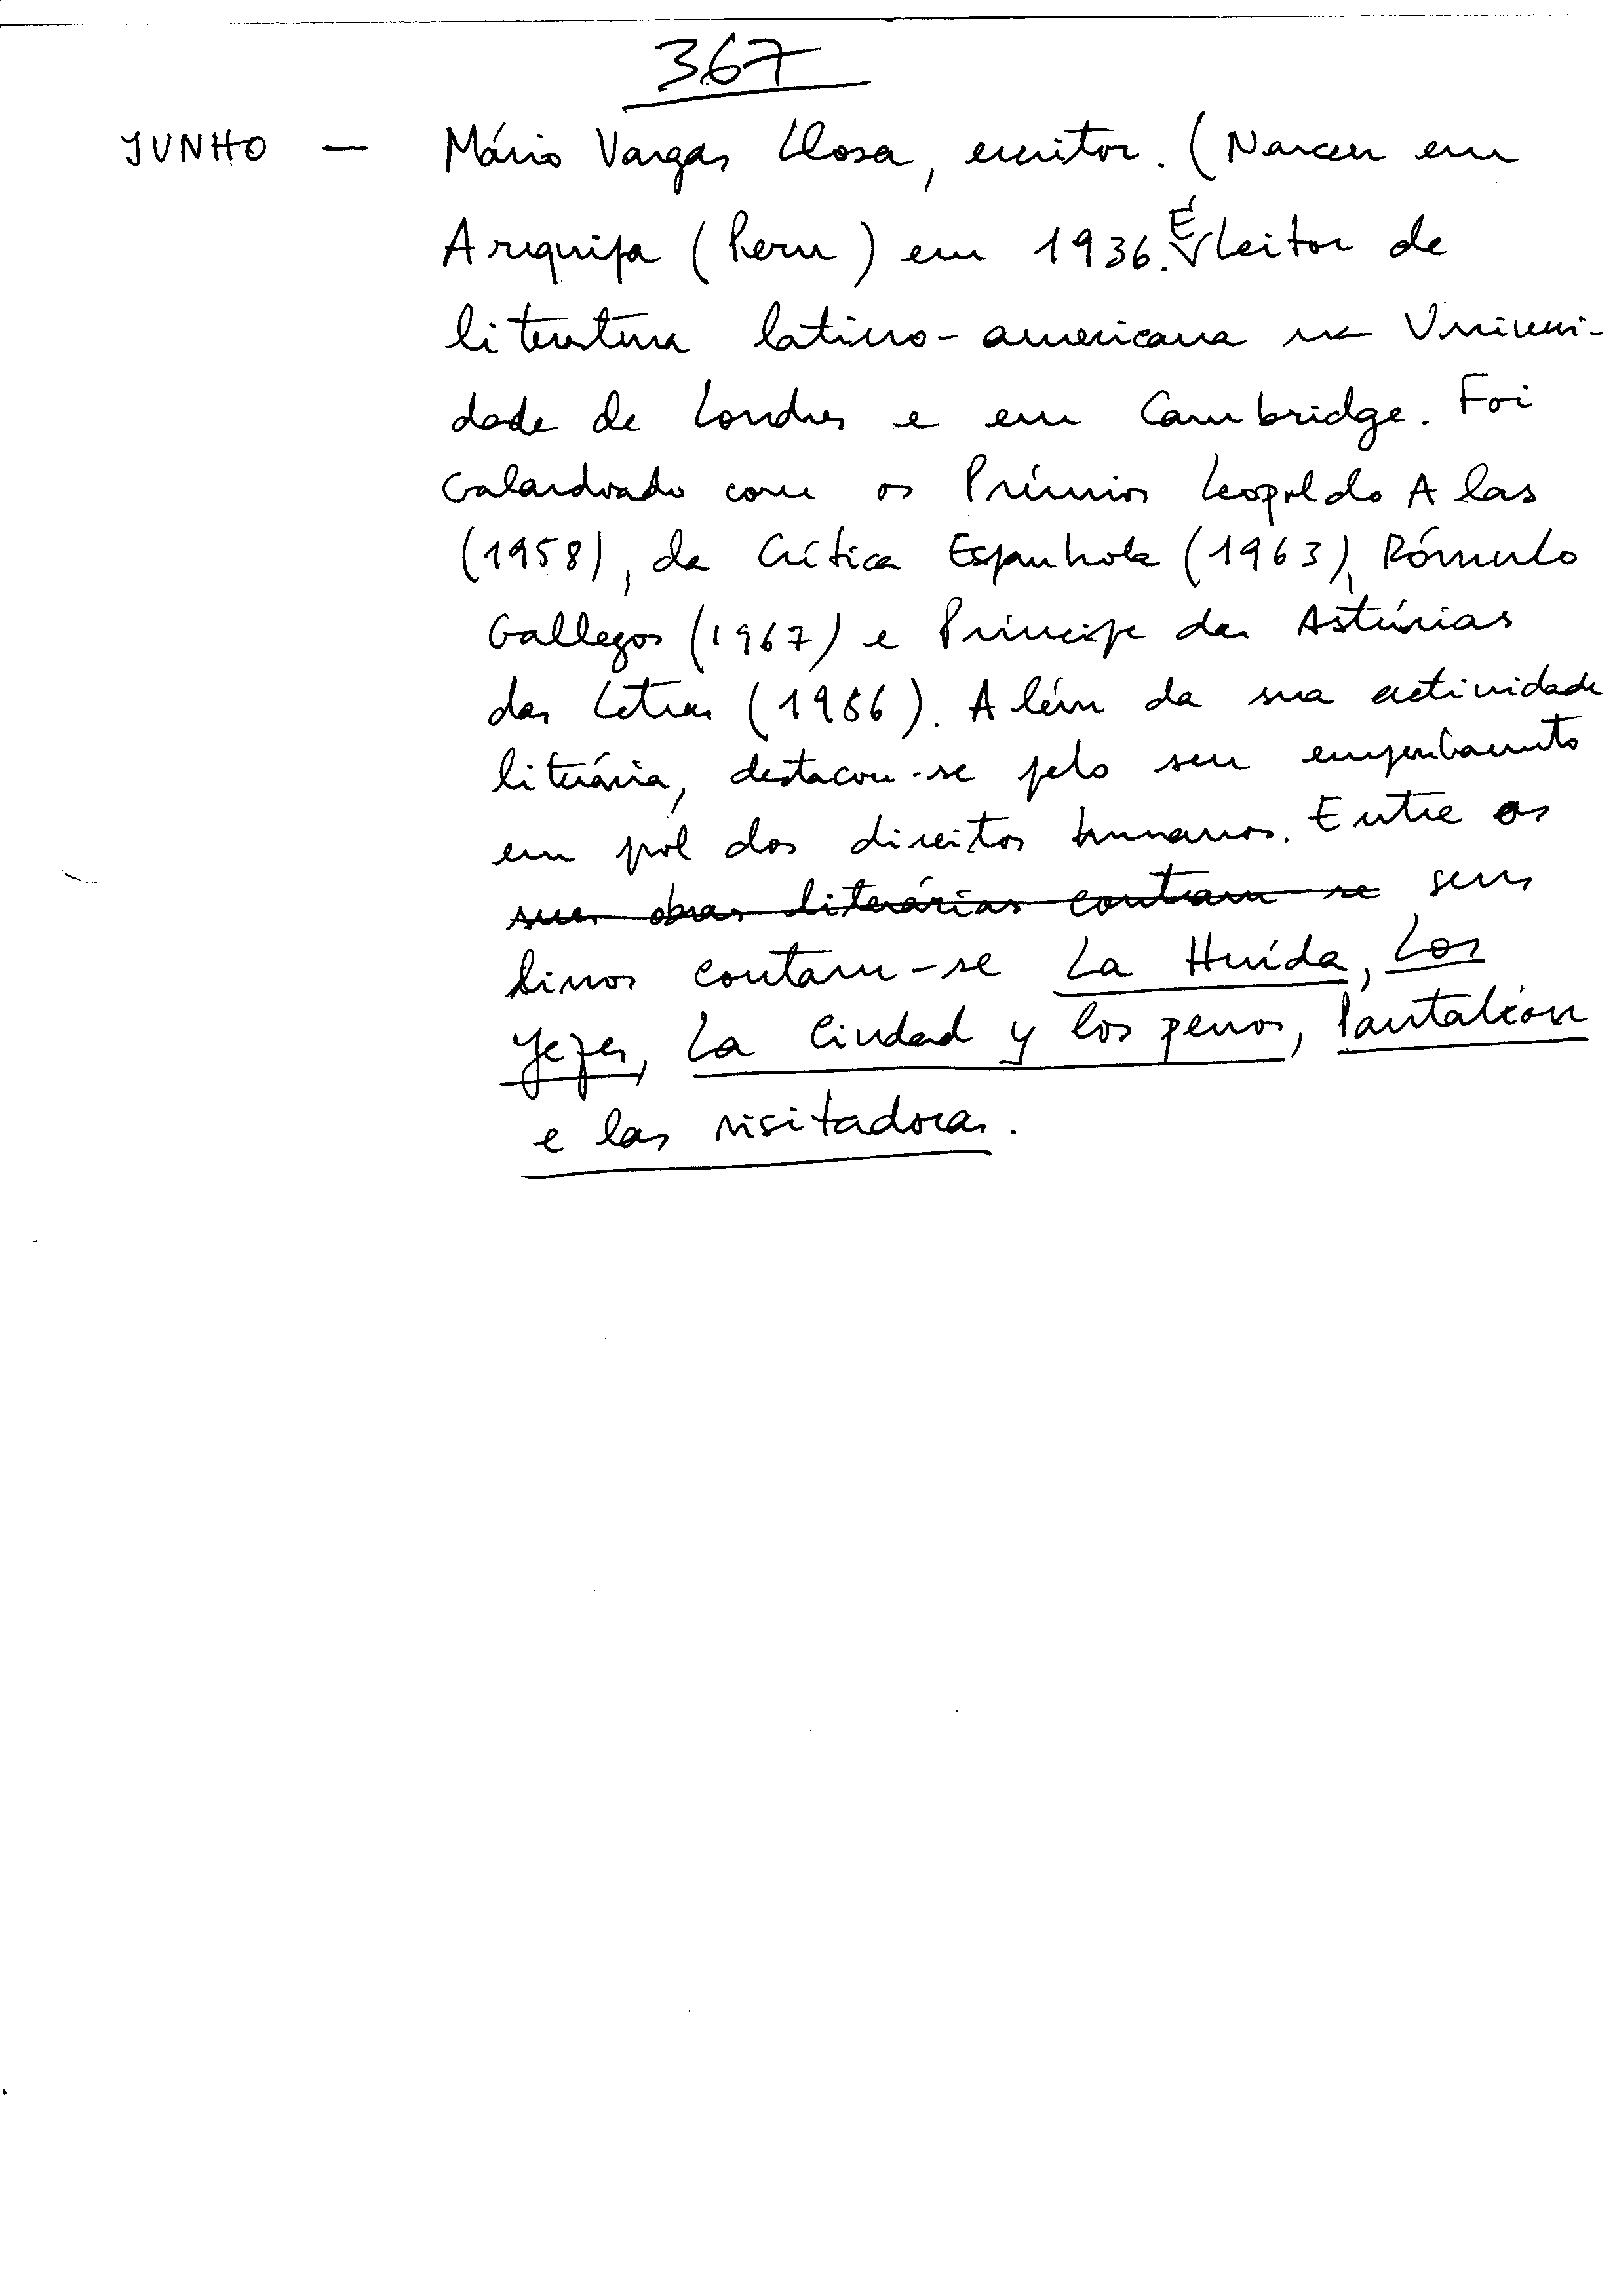 367
JUNHO — Mário Vargas Llosa, escritor. (Nasceu em
Arequipa (Peru) em 1936. É leitor de
literatura latino-americana na Universi-
dade de Londres e em Cambridge. Foi
Galardoado com os Prémios Leopoldo Alas
(1958), da Crítica Espanhola (1963), Rómulo
Gallegos (1967) e Príncipe das Astúrias
das Letras (1986). Além da sua actividade
literária, destacou-se pelo seu empenhamento
em pól dos direitos humanos. Entre os
suas obras literárias contam-se seus
livros contam-se La Huída, Los
Jefes, La Ciudad y los perros, Pantaléon
e las visitadoras.